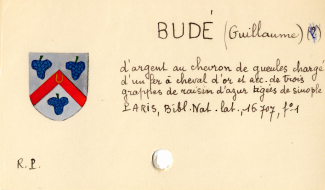 BUDÉ (Guillaume) (?)
d'argent au chevron de gueules chargé
d'un fer à cheval d'or et acc. de trois
grappes de raisin d'azur tigées de sinople
PARIS, Bibl. Nat. lat., 16 707, f° 1
R.P.